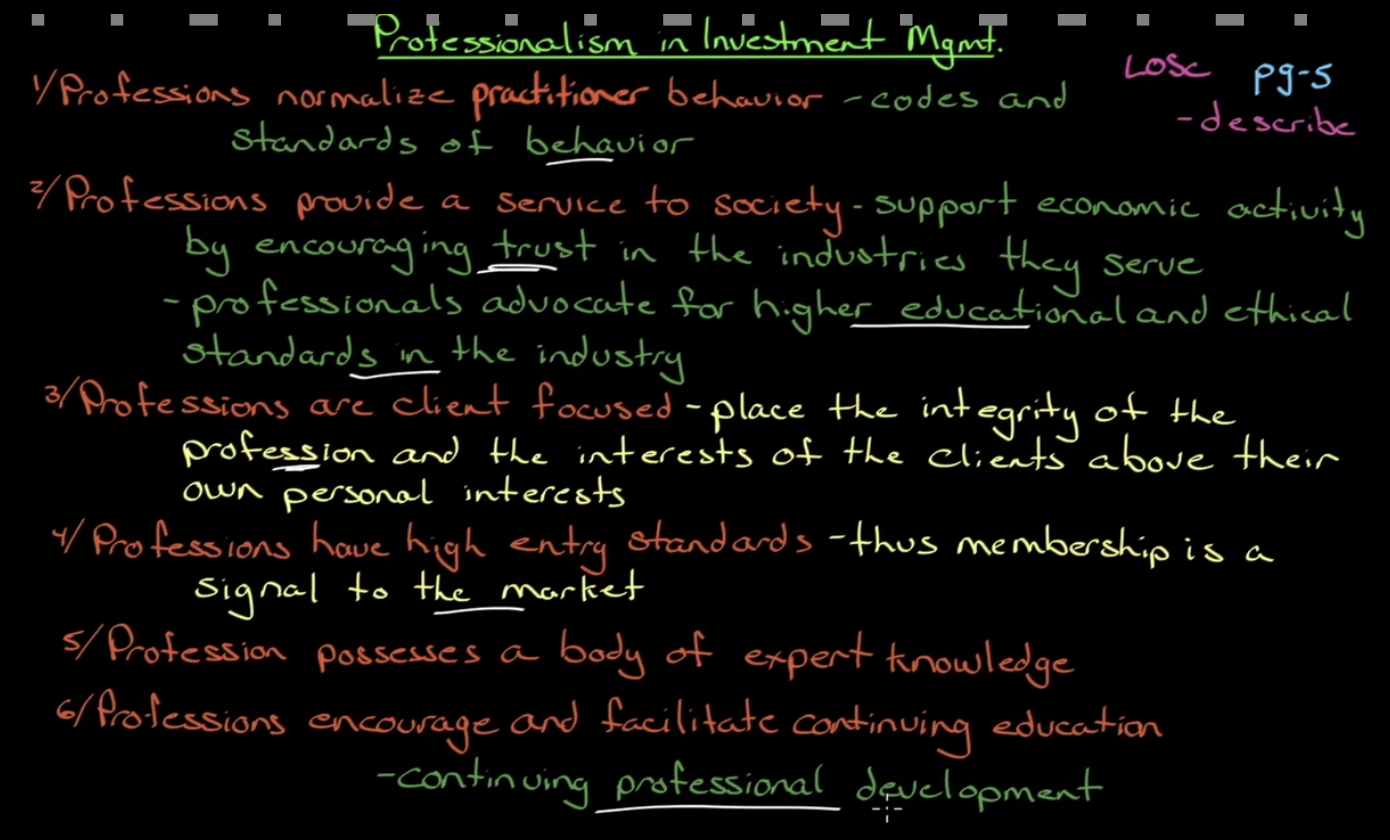 Professionalism in Investment Mgmt.
LOSc pg-5
-describe
1/Professions normalize practitioner behavior - codes and
standards of behavior
2/Professions provide a service to society - support economic activity
by encouraging trust in the industries they serve
- professionals advocate for higher educational and ethical
standards in the industry
3/Professions are client focused - place the integrity of the
profession and the interests of the clients above their
own personal interests
4/Professions have high entry standards - thus membership is a
signal to the market
5/Profession possesses a body of expert knowledge
6/Professions encourage and facilitate continuing education
-continuing professional development